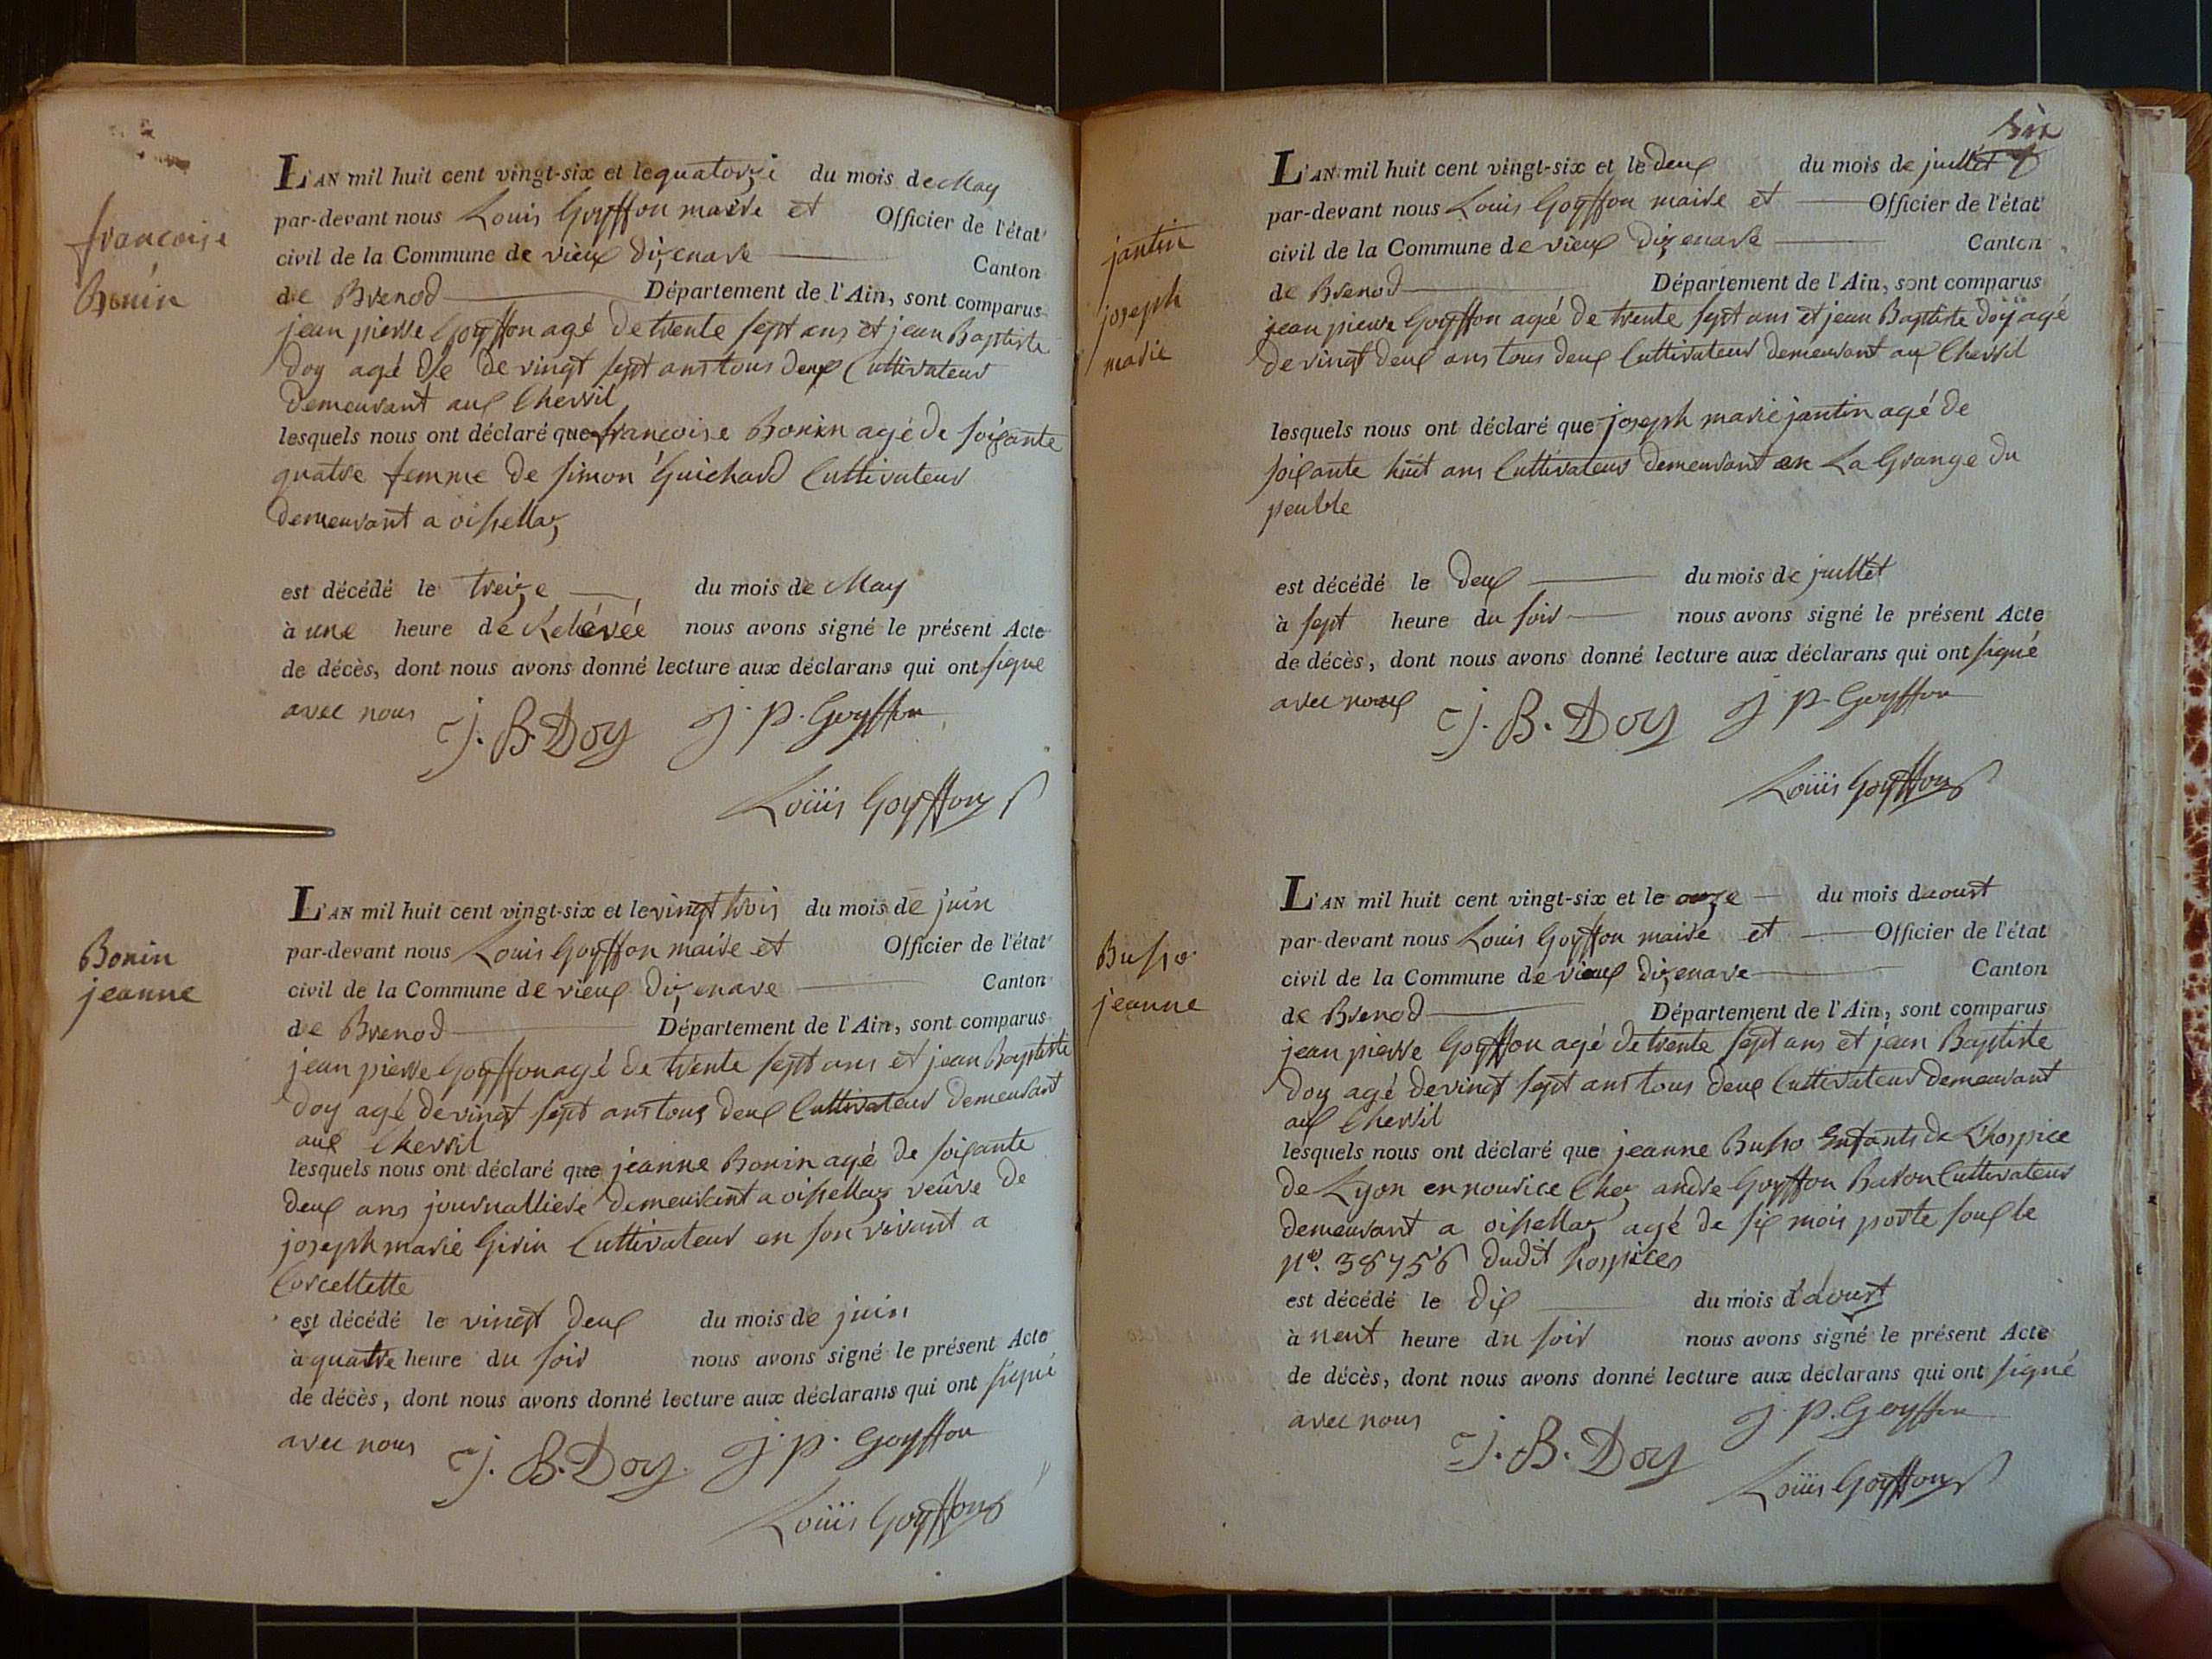 francoise
Bonin
L'AN mil huit cent vingt-six et le quatorzi du mois de May
par-devant nous Louis Goyffon maire et Officier de l'état
civil de la Commune de vieux dizenave Canton
de Brenod Département de l'Ain, sont comparus
jean pierre Goyffon agé de trente sept ans et jean Baptiste
doy agé de de vingt sept ans tous deux Cultivateur
demeurant aux Chevril
lesquels nous ont déclaré que francoise Bonin agé de soixante
quatre femme de simon Guichard Cultivateur
demeurant a oissellaz
est décédé le treize du mois de May
à une heure de Relévée nous avons signé le présent Acte
de décès, dont nous avons donné lecture aux déclarans qui ont signé
avec nous J. B. Doy j. p. Goyffon
Louis Goyffon
Bonin
jeanne
L'AN mil huit cent vingt-six et le vingt trois du mois de juin
par-devant nous Louis Goyffon maire et Officier de l'état
civil de la Commune de vieux dizenave Canton
de Brenod Département de l'Ain, sont comparus
jean pierre Goyffon agé de trente sept ans et jean Baptiste
doy agé de vingt sept ans tous deux Cultivateur demeurant
aux Chevril
lesquels nous ont déclaré que jeanne Bonin agé de soixante
deux ans journalliere demeurant a oissellaz veuve de
joseph marie Girin Cultivateur en son vivant a
Corcellette
est décédé le vingt deux du mois de juin
à quatre heure du soir nous avons signé le présent Acte
de décès, dont nous avons donné lecture aux déclarans qui ont signé
avec nous J. B. Doy j. p. Goyffon
Louis Goyffon
six
jantin
joseph
marie
L'AN mil huit cent vingt-six et le deux du mois de juillet
par-devant nous Louis Goyffon maire et Officier de l'état
civil de la Commune de vieux dizenave Canton
de Brenod Département de l'Ain, sont comparus
jean pierre Goyffon agé de trente sept ans et jean Baptiste doy agé
de vingt deux ans tous deux Cultivateur demeurant aux Chevril
lesquels nous ont déclaré que joseph marie jantin agé de
soixante huit ans Cultivateur demeurant en La Grange du
peuble
est décédé le deux du mois de juillet
à sept heure du soir nous avons signé le présent Acte
de décès, dont nous avons donné lecture aux déclarans qui ont signé
avec nous J. B. Doy j p. Goyffon
Louis Goyffon
Busso
jeanne
L'AN mil huit cent vingt-six et le onze du mois daoust
par-devant nous Louis Goyffon maire et Officier de l'état
civil de la Commune de vieux dizenave Canton
de Brenod Département de l'Ain, sont comparus
jean pierre Goyffon agé de trente sept ans et jean Baptiste
doy agé de vingt sept ans tous deux Cultivateur demeurant
aux Chevril
lesquels nous ont déclaré que jeanne Busso Enfants de L'hospice
de Lyon en nourice Chez andre Goyffon Baron Cultivateur
demeurant a oissellaz agé de six mois porte soux le
no. 38756 dudit hospices
est décédé le dix du mois d'aoust
à neuf heure du soir nous avons signé le présent Acte
de décès, dont nous avons donné lecture aux déclarans qui ont signé
avec nous J. B. Doy j. p. Goyffon
Louis Goyffon